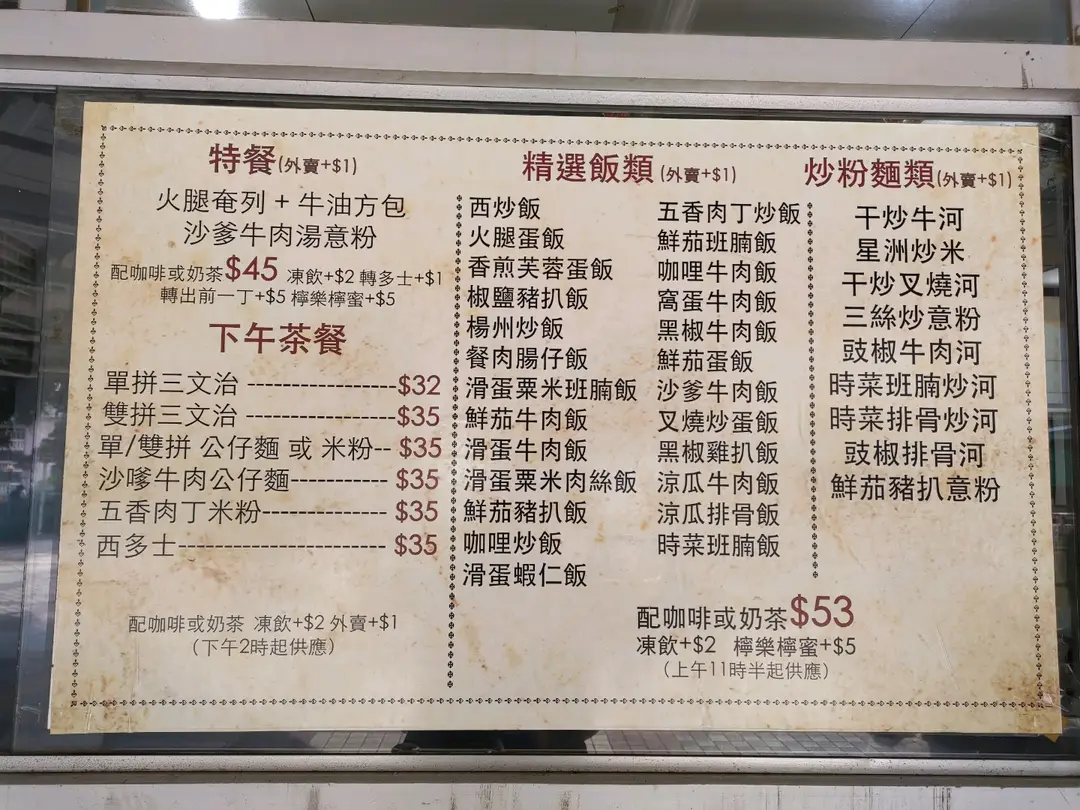 特餐(外賣+$1)
火腿奄列 + 牛油方包
沙爹牛肉湯意粉
配咖啡或奶茶$45 凍飲+$2 轉多士+$1
轉出前一丁+$5 檸樂檸蜜+$5
下午茶餐
單拼三文治 -----------------$32
雙拼三文治 -----------------$35
單/雙拼 公仔麵 或 米粉-- $35
沙嗲牛肉公仔麵----------- $35
五香肉丁米粉-------------- $35
西多士------------------------ $35
配咖啡或奶茶 凍飲+$2 外賣+$1
(下午2時起供應)
精選飯類 (外賣+$1)
西炒飯
火腿蛋飯
香煎芙蓉蛋飯
椒鹽豬扒飯
楊州炒飯
餐肉腸仔飯
滑蛋粟米班腩飯
鮮茄牛肉飯
滑蛋牛肉飯
滑蛋粟米肉絲飯
鮮茄豬扒飯
咖哩炒飯
滑蛋蝦仁飯
五香肉丁炒飯
鮮茄班腩飯
咖哩牛肉飯
窩蛋牛肉飯
黑椒牛肉飯
鮮茄蛋飯
沙爹牛肉飯
叉燒炒蛋飯
黑椒雞扒飯
涼瓜牛肉飯
涼瓜排骨飯
時菜班腩飯
炒粉麵類(外賣+$1)
干炒牛河
星洲炒米
干炒叉燒河
三絲炒意粉
豉椒牛肉河
時菜班腩炒河
時菜排骨炒河
豉椒排骨河
鮮茄豬扒意粉
配咖啡或奶茶$53
凍飲+$2 檸樂檸蜜+$5
(上午11時半起供應)